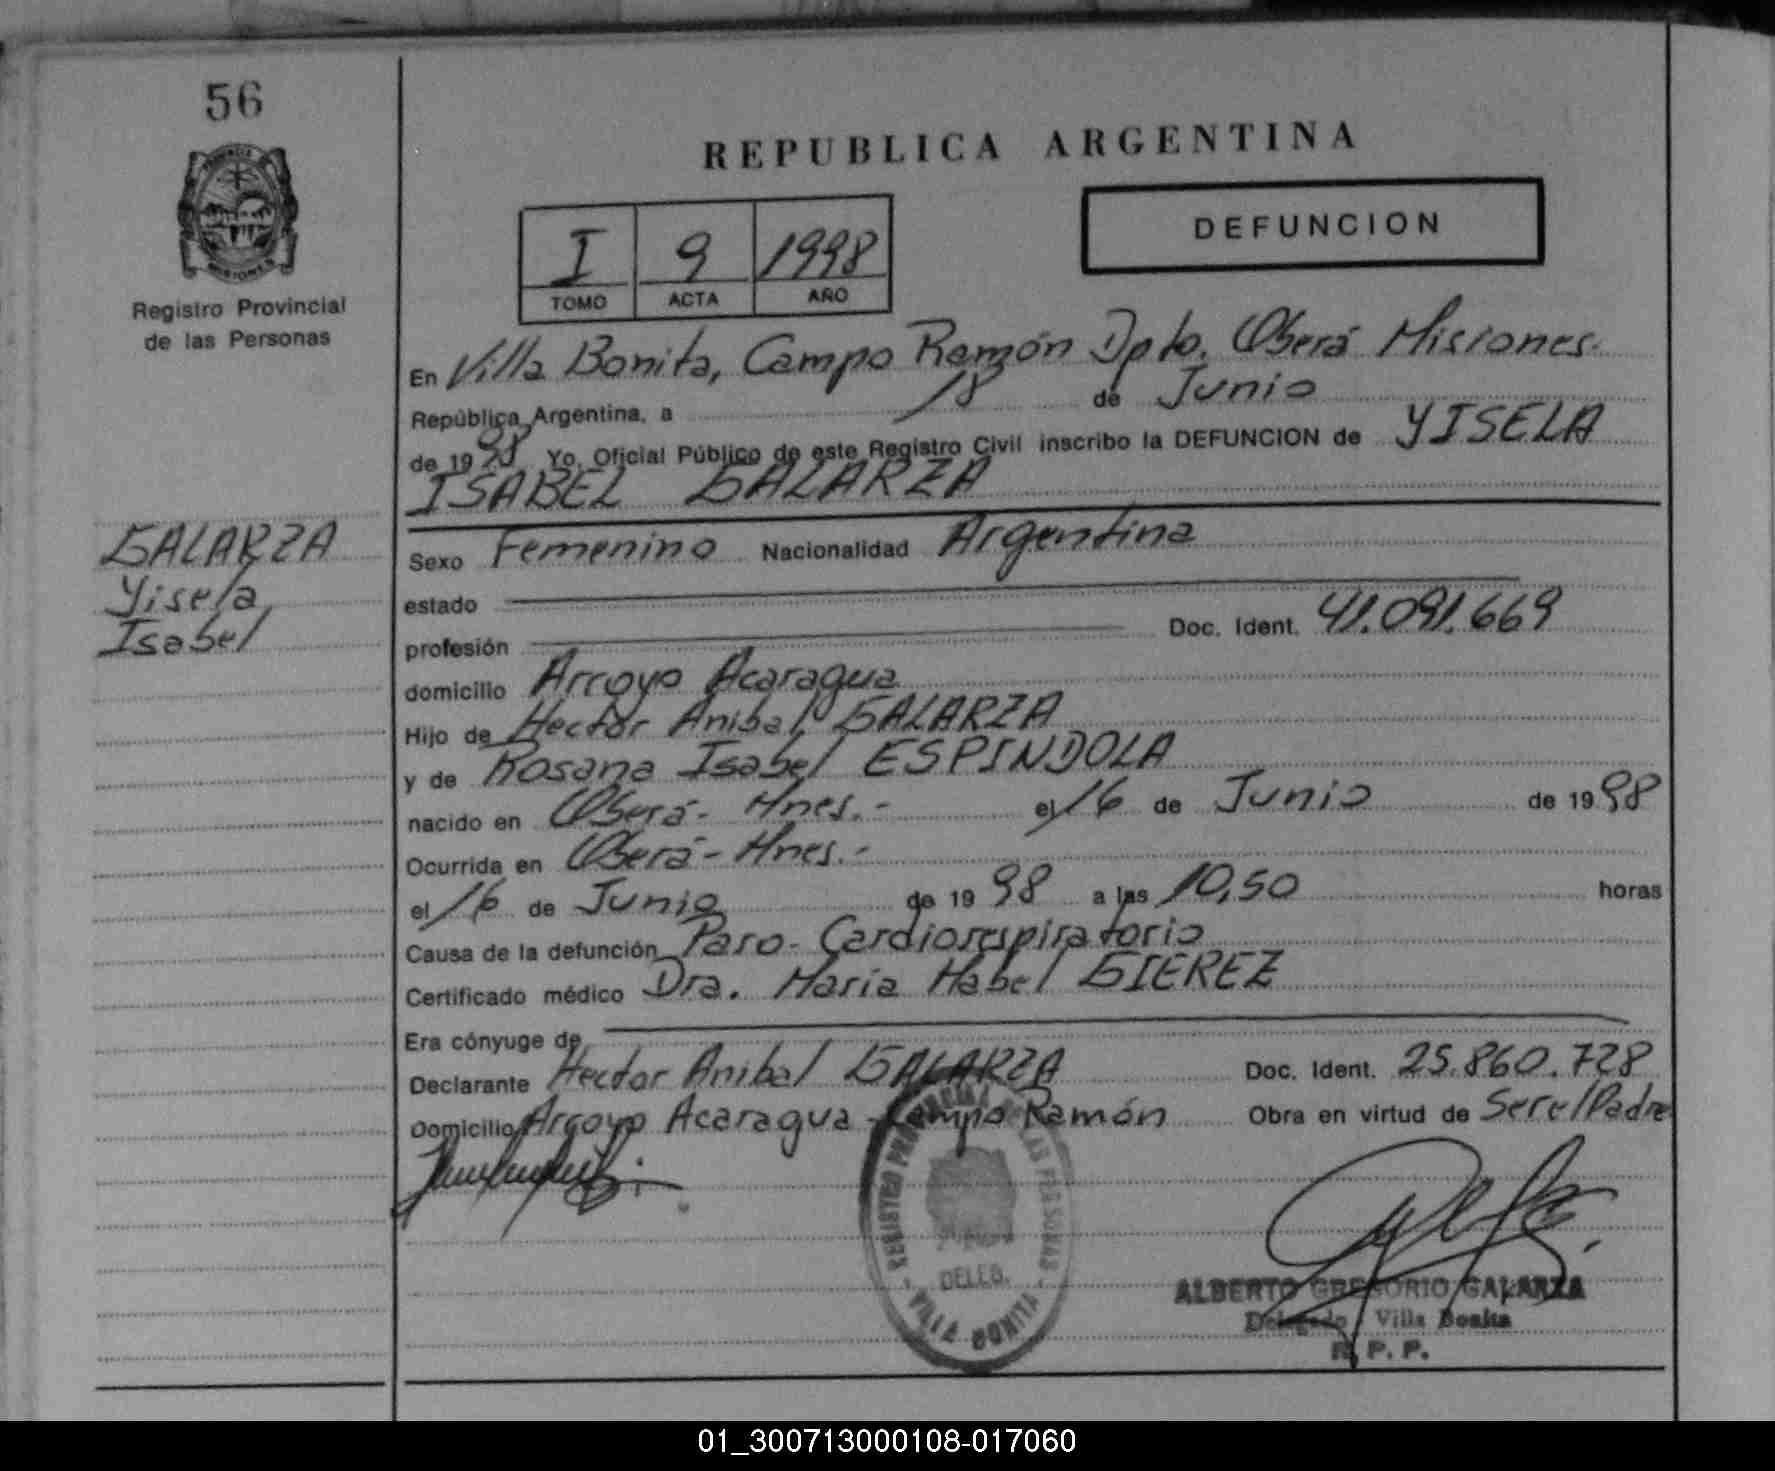 56
PROVINCIA DE
MISIONES
Registro Provincial
de las Personas
GALARZA
Yisela
Isabel
REPUBLICA ARGENTINA
I 9 1998
TOMO ACTA AÑO
DEFUNCION
En Villa Bonita, Campo Ramón Dpto. Oberá Misiones.
República Argentina, a 18 de Junio
de 1998 Yo, Oficial Público de este Registro Civil inscribo la DEFUNCION de YISELA
ISABEL GALARZA
Sexo Femenino Nacionalidad Argentina
estado
profesión Doc. Ident. 41.091.669
domicilio Arroyo Acaragua
Hijo de Hector Anibal GALARZA
y de Rosana Isabel ESPINDOLA
nacido en Oberá- Mnes.- el 16 de Junio de 1998
Ocurrida en Oberá- Mnes.-
el 16 de Junio de 1998 a las 10,50 horas
Causa de la defunción Paro- Cardiorespiratorio
Certificado médico Dra. Maria Mabel GIEREZ
Era cónyuge de
Declarante Hector Anibal GALARZA Doc. Ident. 25.860.728
Domicilio Arroyo Acaragua - Campo Ramón Obra en virtud de Ser el Padre
REGISTRO PROVINCIAL DE LAS PERSONAS
DELEG.
VILLA BONITA
ALBERTO GREGORIO GALARZA
Delegado Villa Bonita
R. P. P.
01_300713000108-017060